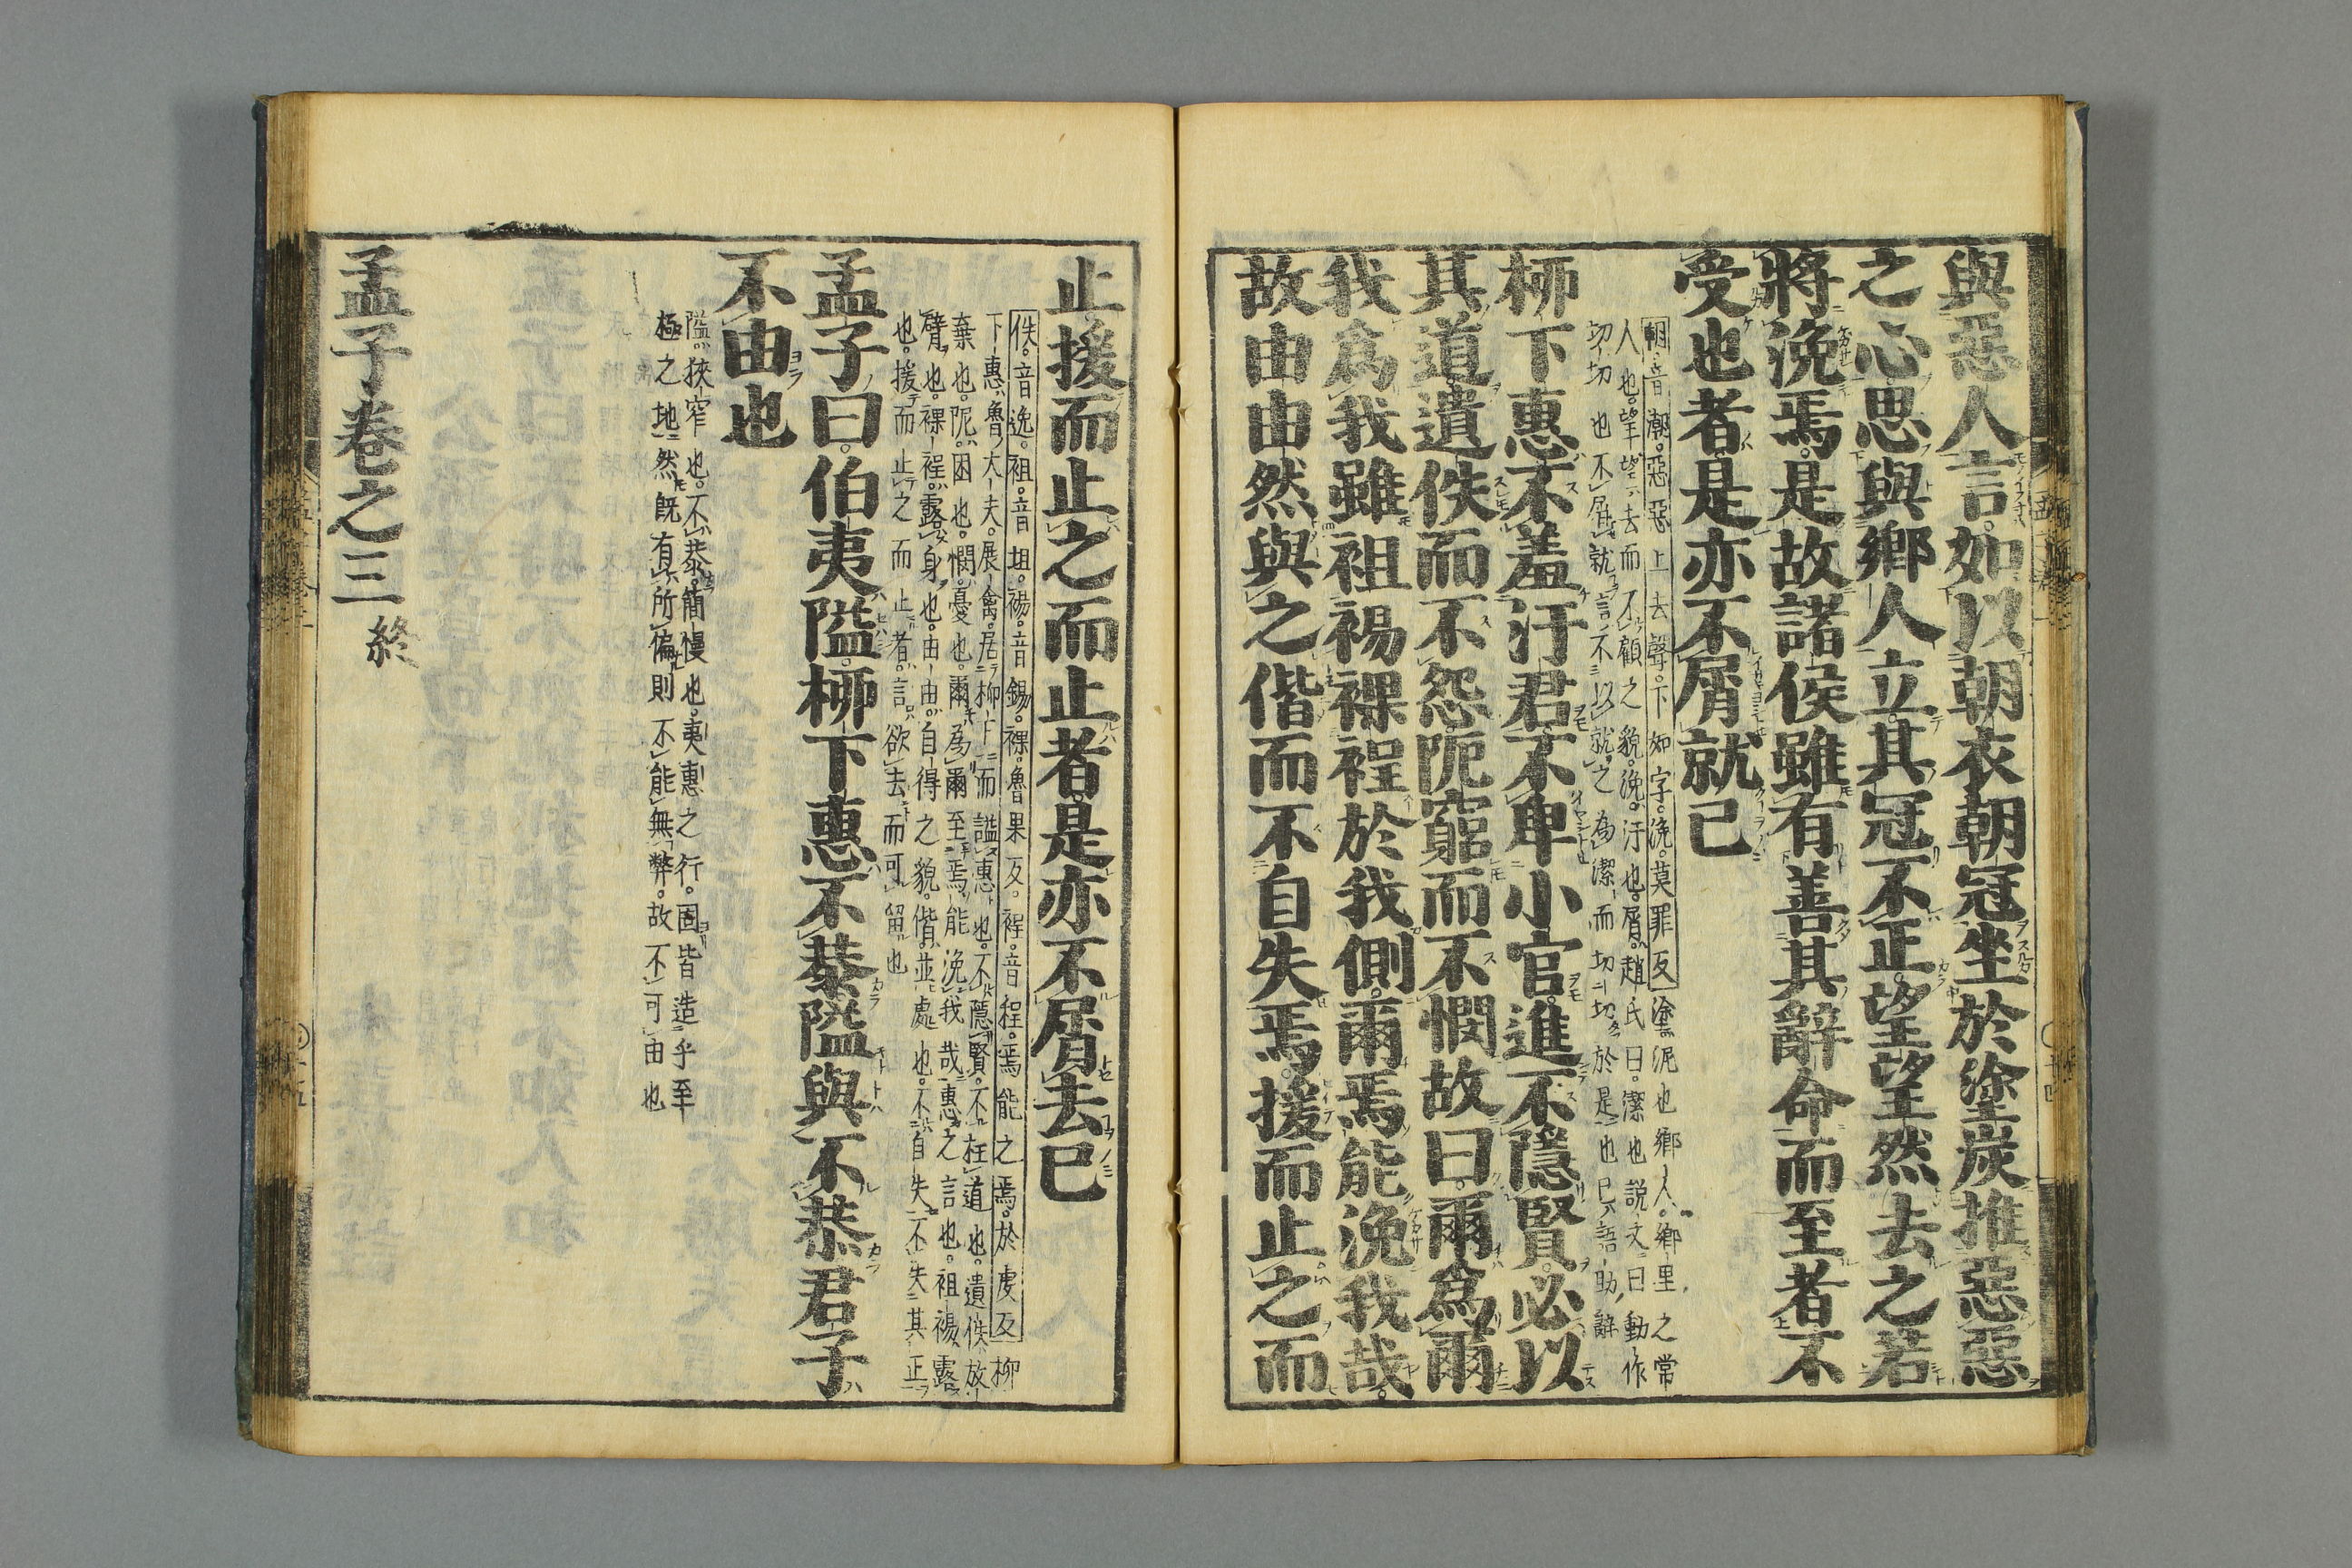 與惡人言如以朝衣朝冠坐於塗炭推惡惡
之心思與鄉人立其冠不正望望然去之若
將浼焉是故諸侯雖有善其辭命而至者不
受也者是亦不屑就已
朝音潮惡惡上去聲下如字浼莫罪反塗泥也鄉人鄉里之常
人也望望去而不顧之貌浼汙也屑趙氏曰潔也說文曰動作
切切也不屑就言不以就之為潔而切切於是也已語助辭
柳下惠不羞汙君不卑小官進不隱賢必以
其道遺佚而不怨阨窮而不憫故曰爾為爾
我為我雖袒裼裸裎於我側爾焉能浼我哉
故由由然與之偕而不自失焉援而止之而
止援而止之而止者是亦不屑去已
佚音逸袒音坦裼音錫裸魯果反裎音程焉能之焉於虔反柳
下惠魯大夫展禽居柳下而謚惠也不隱賢不枉道也遺佚放
棄也阨困也憫憂也爾為爾至焉能浼我哉惠之言也袒裼露
臂也裸裎露身也由由自得之貌偕並處也不自失不失其正
也援而止之而止者言欲去而可留也
孟子曰伯夷隘柳下惠不恭隘與不恭君子
不由也
隘狹窄也不恭簡慢也夷惠之行固皆造乎至
極之地然既有所偏則不能無弊故不可由也
孟子卷之三 終